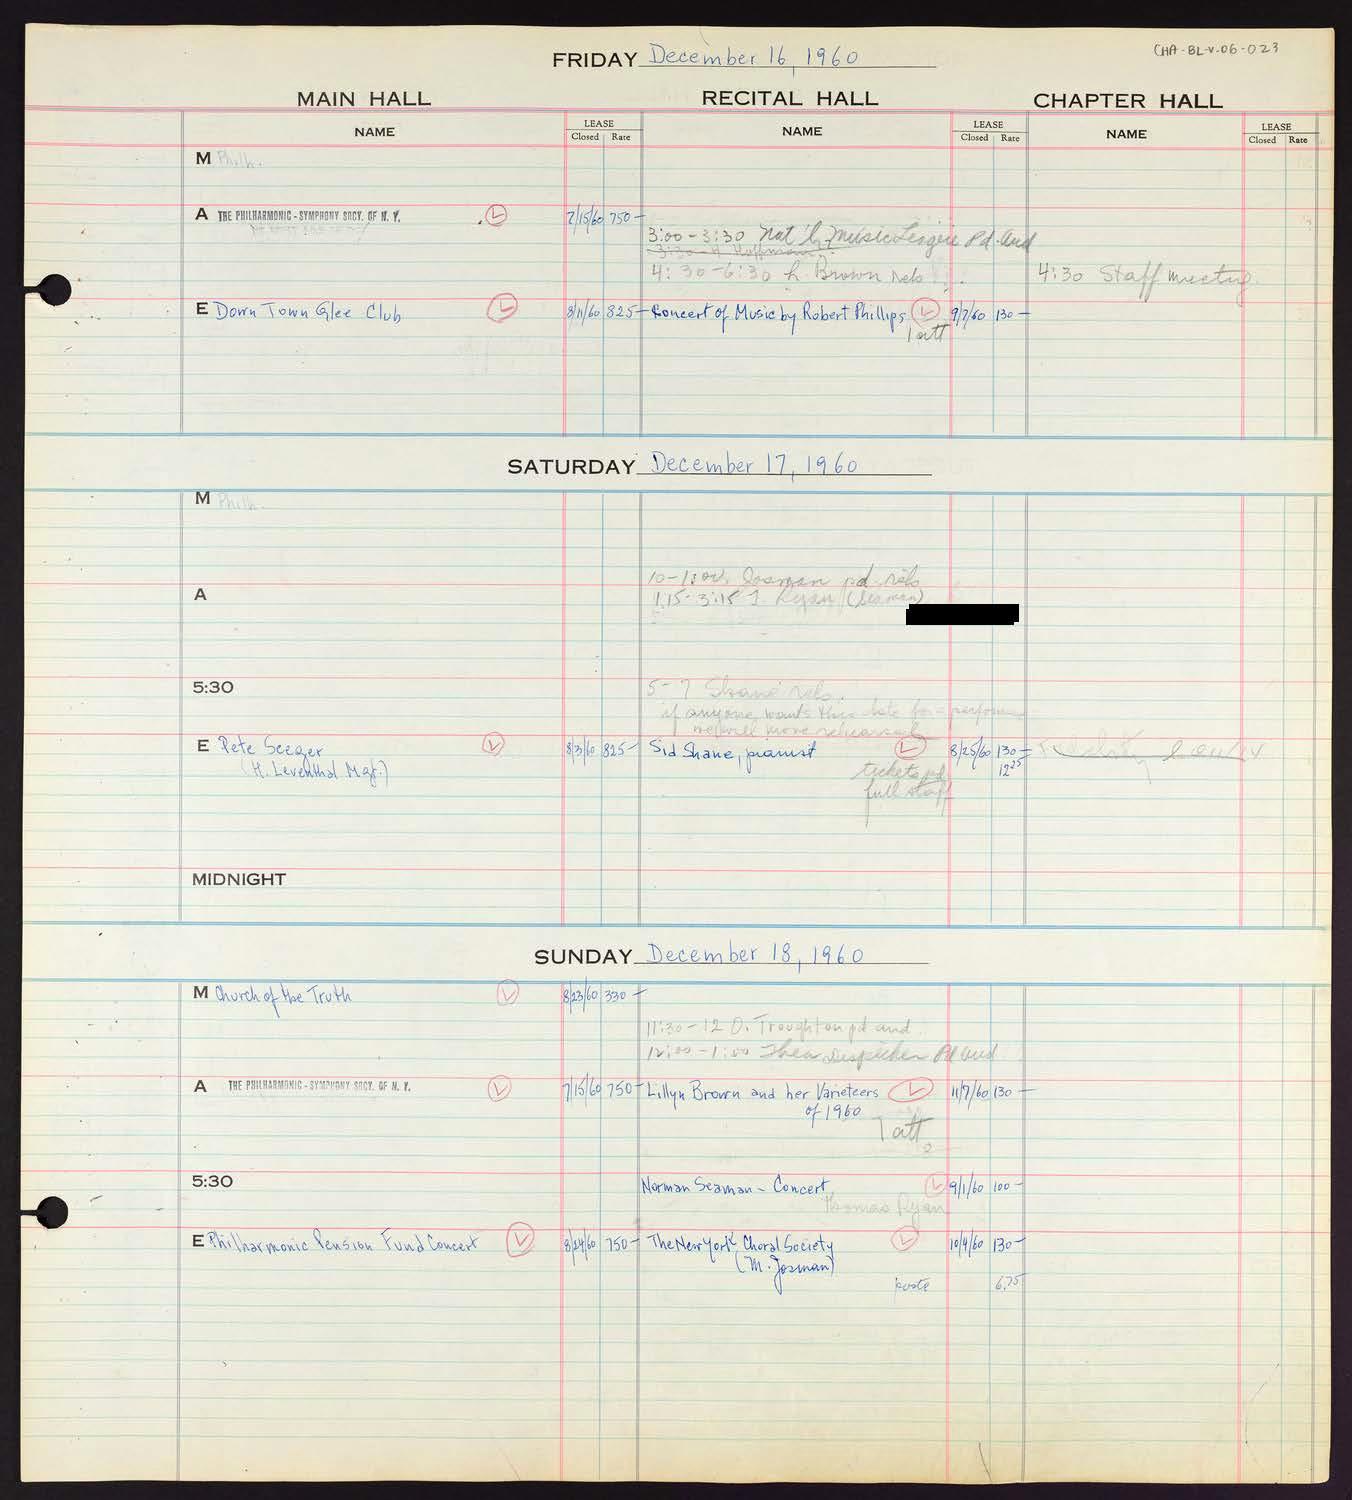 CHA-BL-V-06-023
FRIDAY December 16, 1960
MAIN HALL RECITAL HALL CHAPTER HALL
NAME LEASE Closed Rate NAME LEASE Closed Rate NAME LEASE Closed Rate
M Philh.
A THE PHILHARMONIC-SYMPHONY SOCY. OF N. Y. 7/15/60 750-
3:00-3:30 Nat'l Music League Pd. Aud
3:30-4 Hoffman
4:30-6:30 L. Brown rehs 4:30 Staff meeting
E Down Town Glee Club 8/11/60 825- Concert of Music by Robert Phillips 9/7/60 130-
1 att
SATURDAY December 17, 1960
M Philh.
10-1:00 Josman pd. rehs
A 1:15-3:15 T. Ryan (Seaman)
5:30 5-7 Shane rehs.
if anyone wants this date for a perform
we will move rehearsal
E Pete Seeger 8/3/60 825- Sid Shane, pianist 8/25/60 130-
(H. Leventhal Mgr.) tickets pd 12 25
full staff
MIDNIGHT
SUNDAY December 18, 1960
M Church of the Truth 8/23/60 330-
11:30-12 O. Troughton pd aud
12:00-1:00 Pd aud
A THE PHILHARMONIC-SYMPHONY SOCY. OF N. Y. 7/15/60 750- Lillyn Brown and her Varieteers 11/7/60 130-
of 1960
1 att.
5:30 Norman Seaman - Concert 9/1/60 100-
Thomas Ryan
E Philharmonic Pension Fund Concert 8/24/60 750- The New York Choral Society 10/4/60 130-
(M. Josman)
6.75